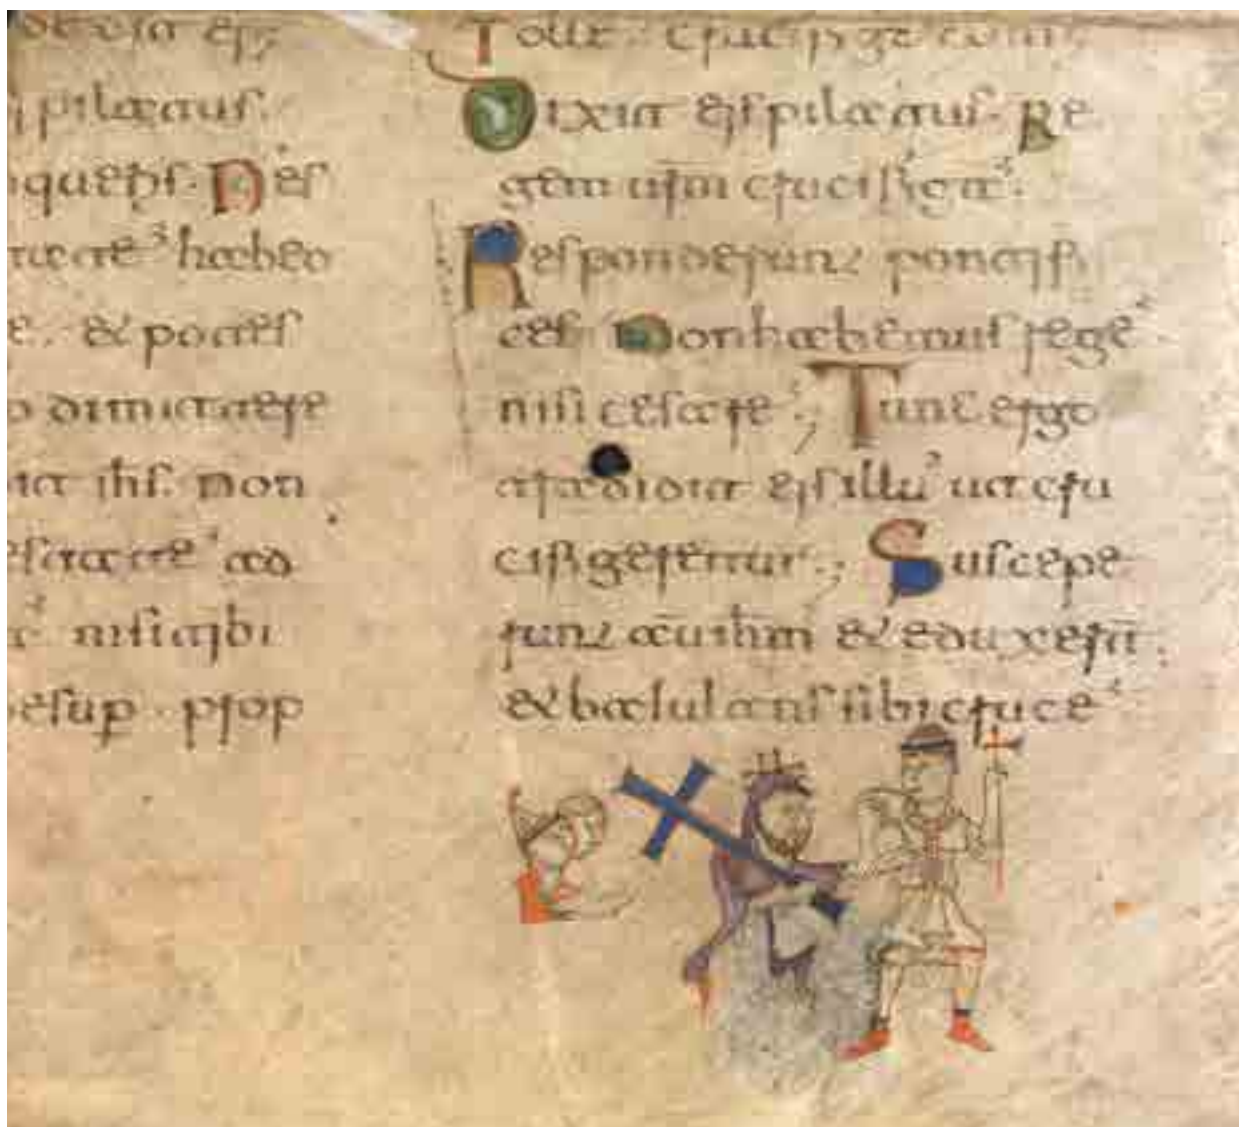 i pilatus.
queris. Nes
tate habeo
e. & potes
o dimittere
dit ihs. Non
estate ad
nisi tibi
desup. prop
Tolle. crucifige eum.
Dixit eis pilatus. Re
gem urm crucifiga.
Responderunt pontifi
ces. Non habemus rege
nisi cesare; Tunc ergo
tradidit eis illu ut cru
cifigeretur; Suscepe
runt aut ihm & eduxert
& baiulans sibi cruce